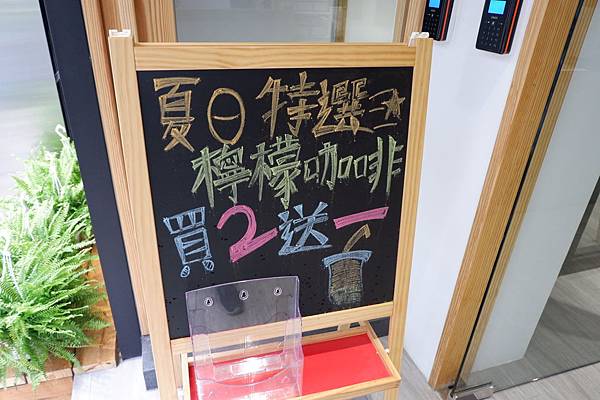 夏日特選
檸檬咖啡
買2送一